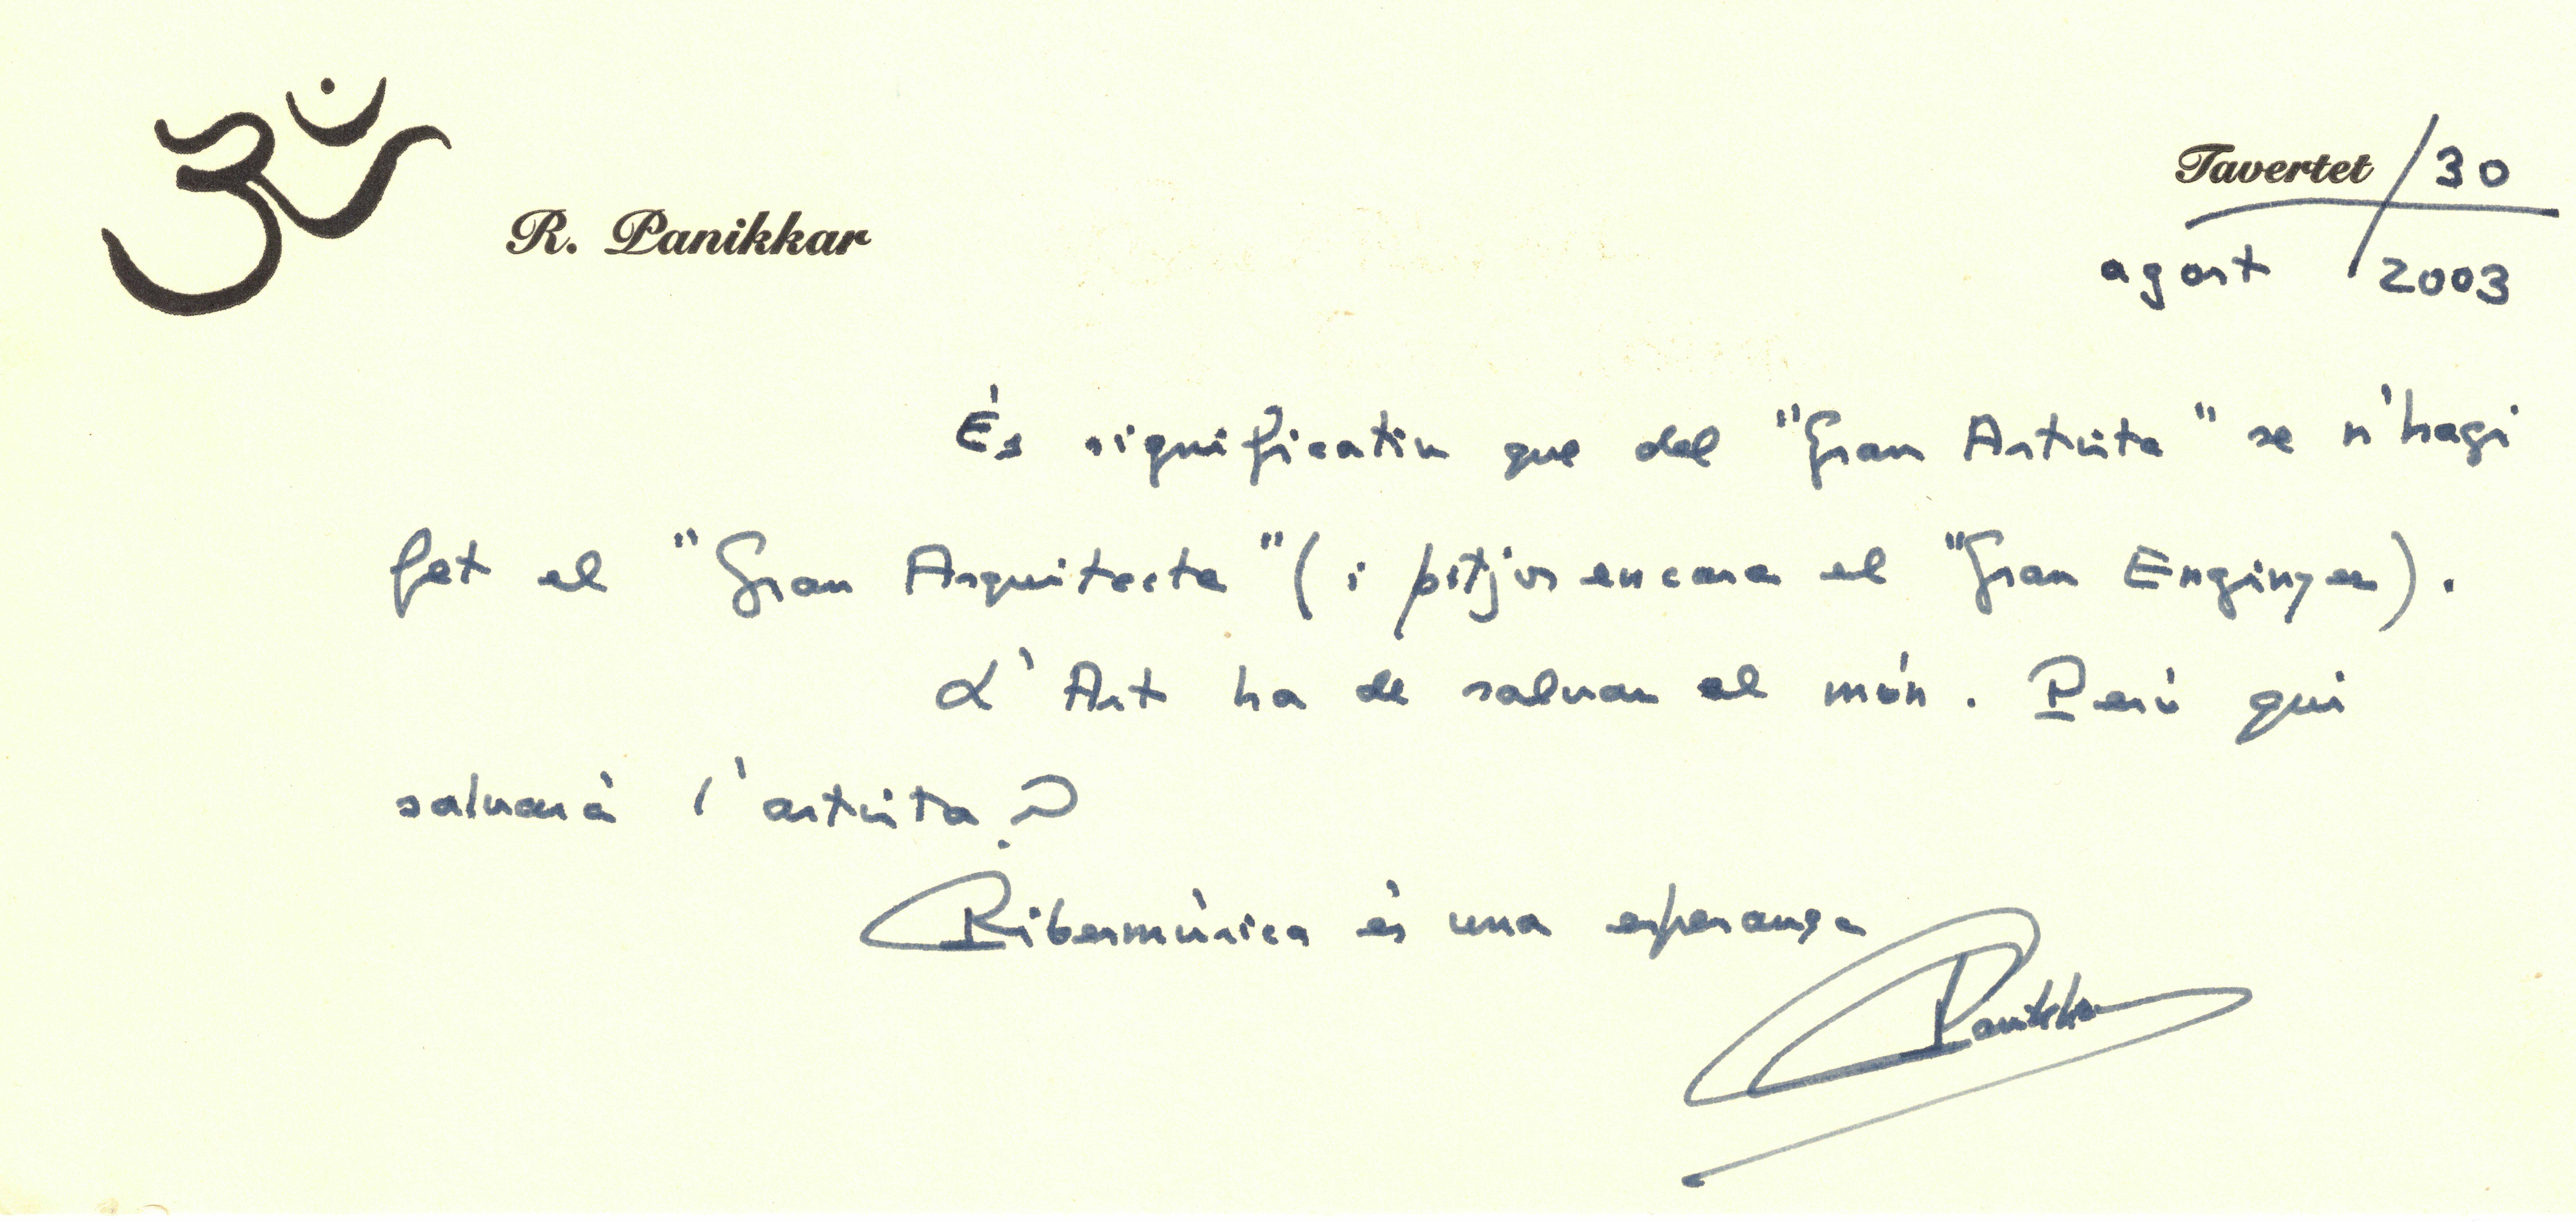 ॐ
R. Panikkar
Tavertet / 30
agost / 2003
És significatiu que del "Gran Artista" se n'hagi
fet el "Gran Arquitecte" (i pitjor encara el "Gran Enginyer).
L'Art ha de salvar el món. Però qui
salvarà l'artista?
Ribermúsica és una esperança
Panikkar